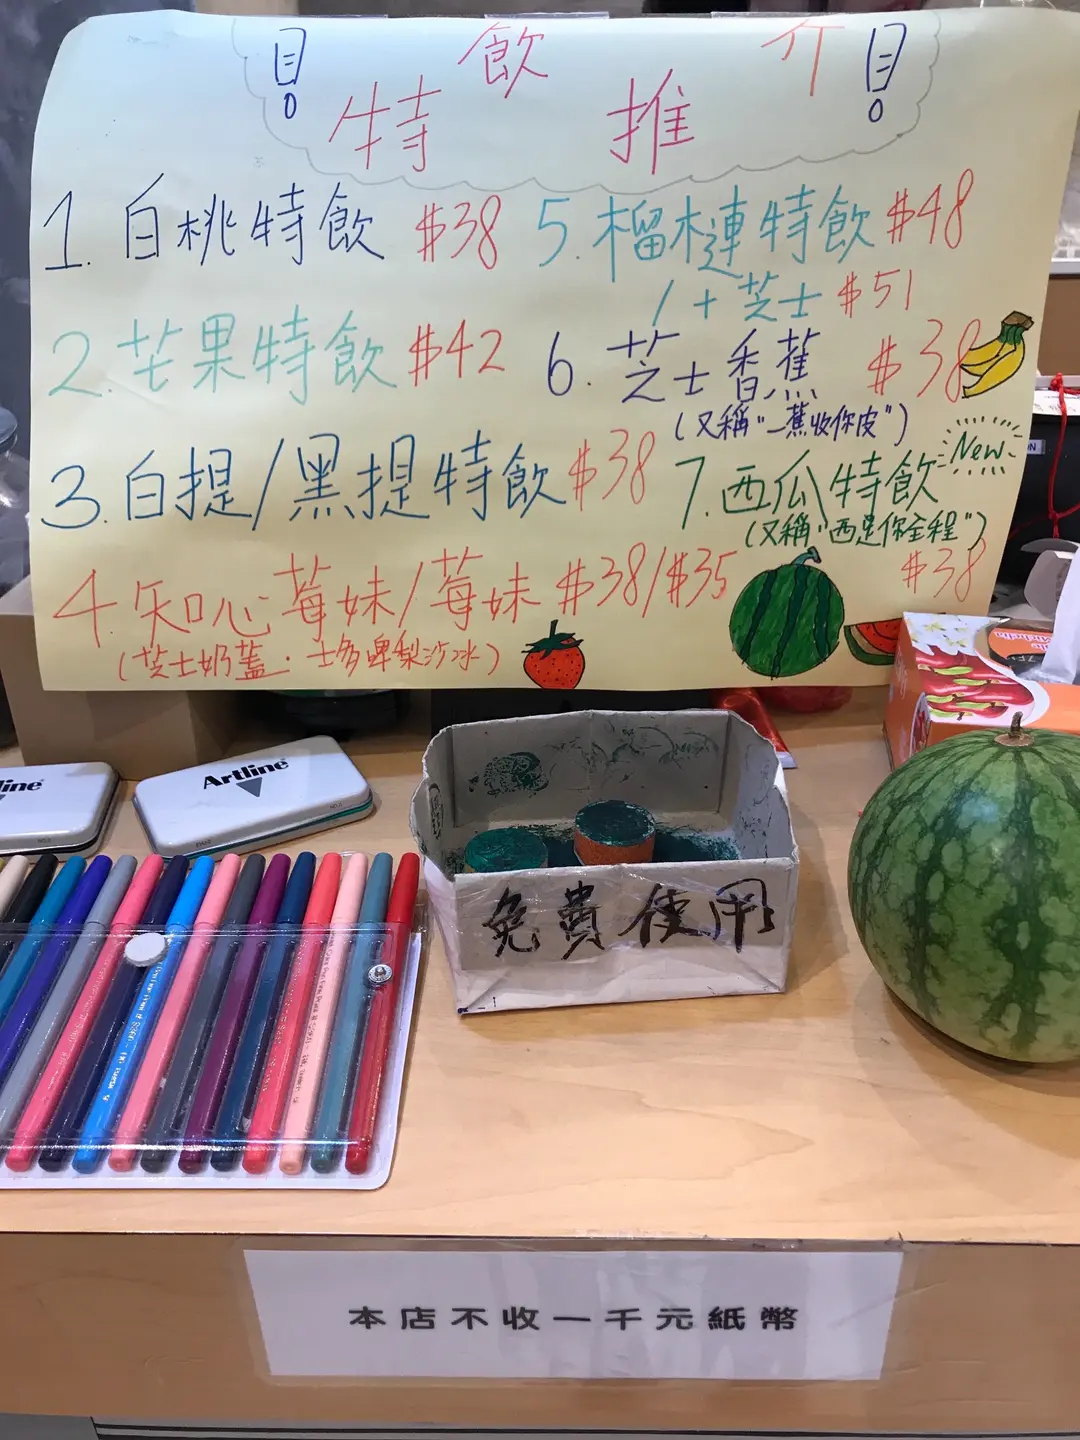 特飲推介
1. 白桃特飲 $38
2. 芒果特飲 $42
3. 白提/黑提特飲 $38
4. 知心莓妹/莓妹 $38/$35
(芝士奶蓋．士多啤梨沙冰)
5. 榴槤特飲 $48
/+芝士 $51
6. 芝士香蕉 $38
(又稱"一蕉收你皮")
7. 西瓜特飲 New
(又稱"西足你全程")
$38
Artline
免費使用
本店不收一千元紙幣